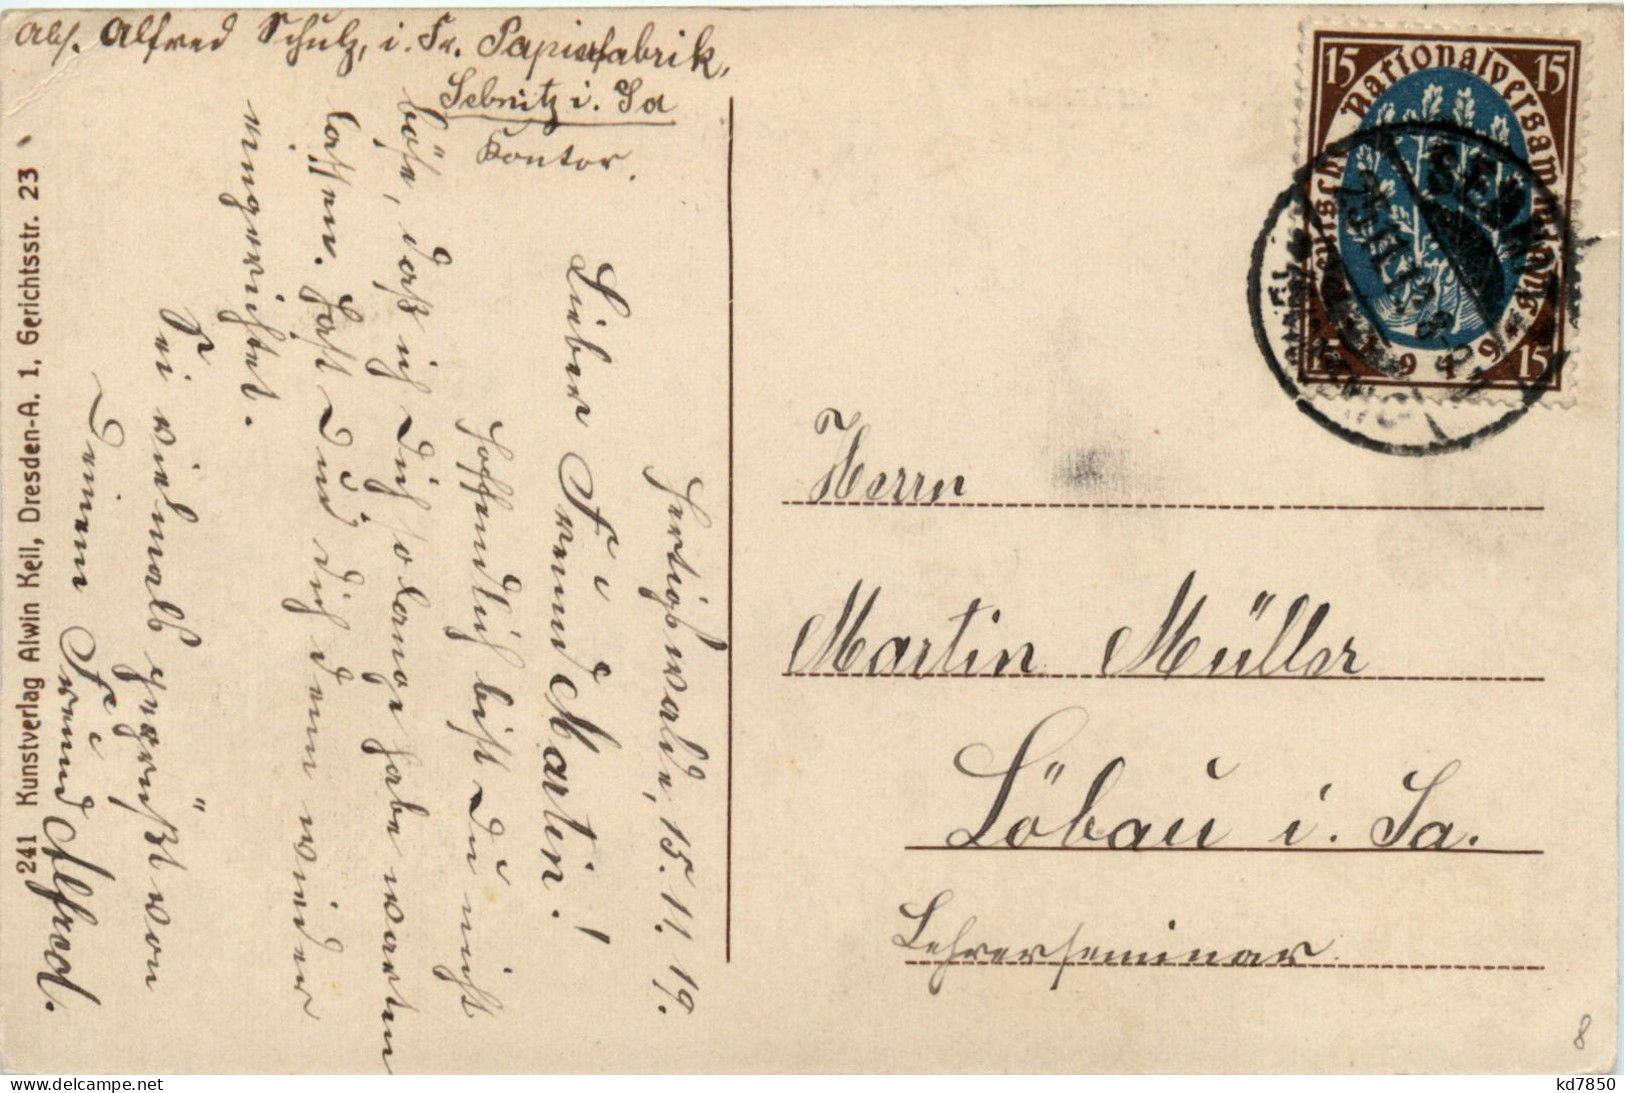 Abs. Alfred Schulz, i. Fa. Papierfabrik,
Sebnitz i. Sa
Kontor.
Hertigswalde, 15. 11. 19.
Lieber Freund Martin!
Hoffentlich bist Du nicht
böse, daß ich Dich solange habe warten
lassen. Hast Du dich denn wieder
eingerichtet.
Sei vielmals gegrüßt von
Deinem Freund Alfred.
241 Kunstverlag Alwin Keil, Dresden-A. 1, Gerichtsstr. 23
15 15
Deutsche Nationalversammlung
1919
15 15
SEBNITZ
Herrn
Martin Müller
Löbau i. Sa.
Lehrerseminar.
8
kd7850